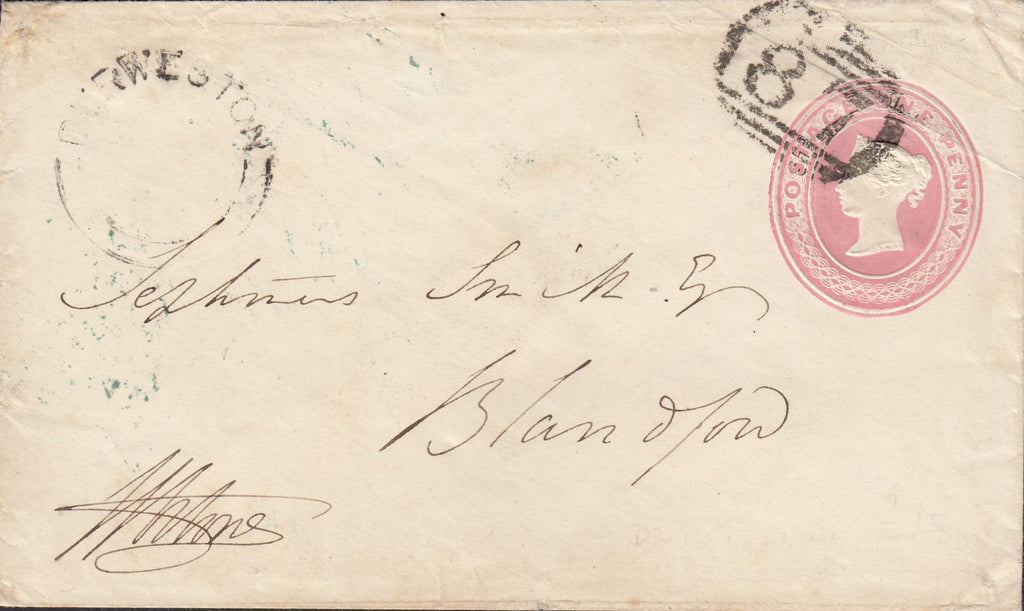 DURWESTON
8
POSTAGE ONE PENNY
Septimus Smith Esq
Blandford